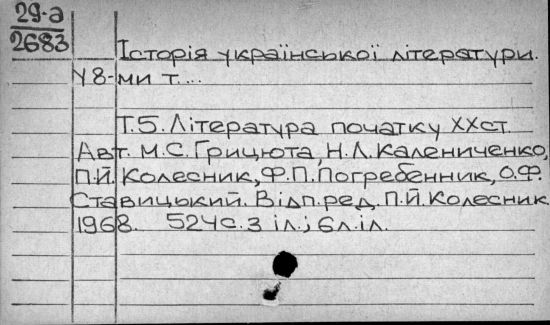 29-а
2683
Історія української літератури.
У 8-ми т...
Т.5. Література початку ХХст.
Авт. М.С.Грицюта, Н.Л.Калениченко,
П.Й.Колесник, Ф.П.Погребенник, О.Ф.
Ставицький. Відп.ред. П.Й.Колесник.
1968. 524с. з іл.; 6л.іл.